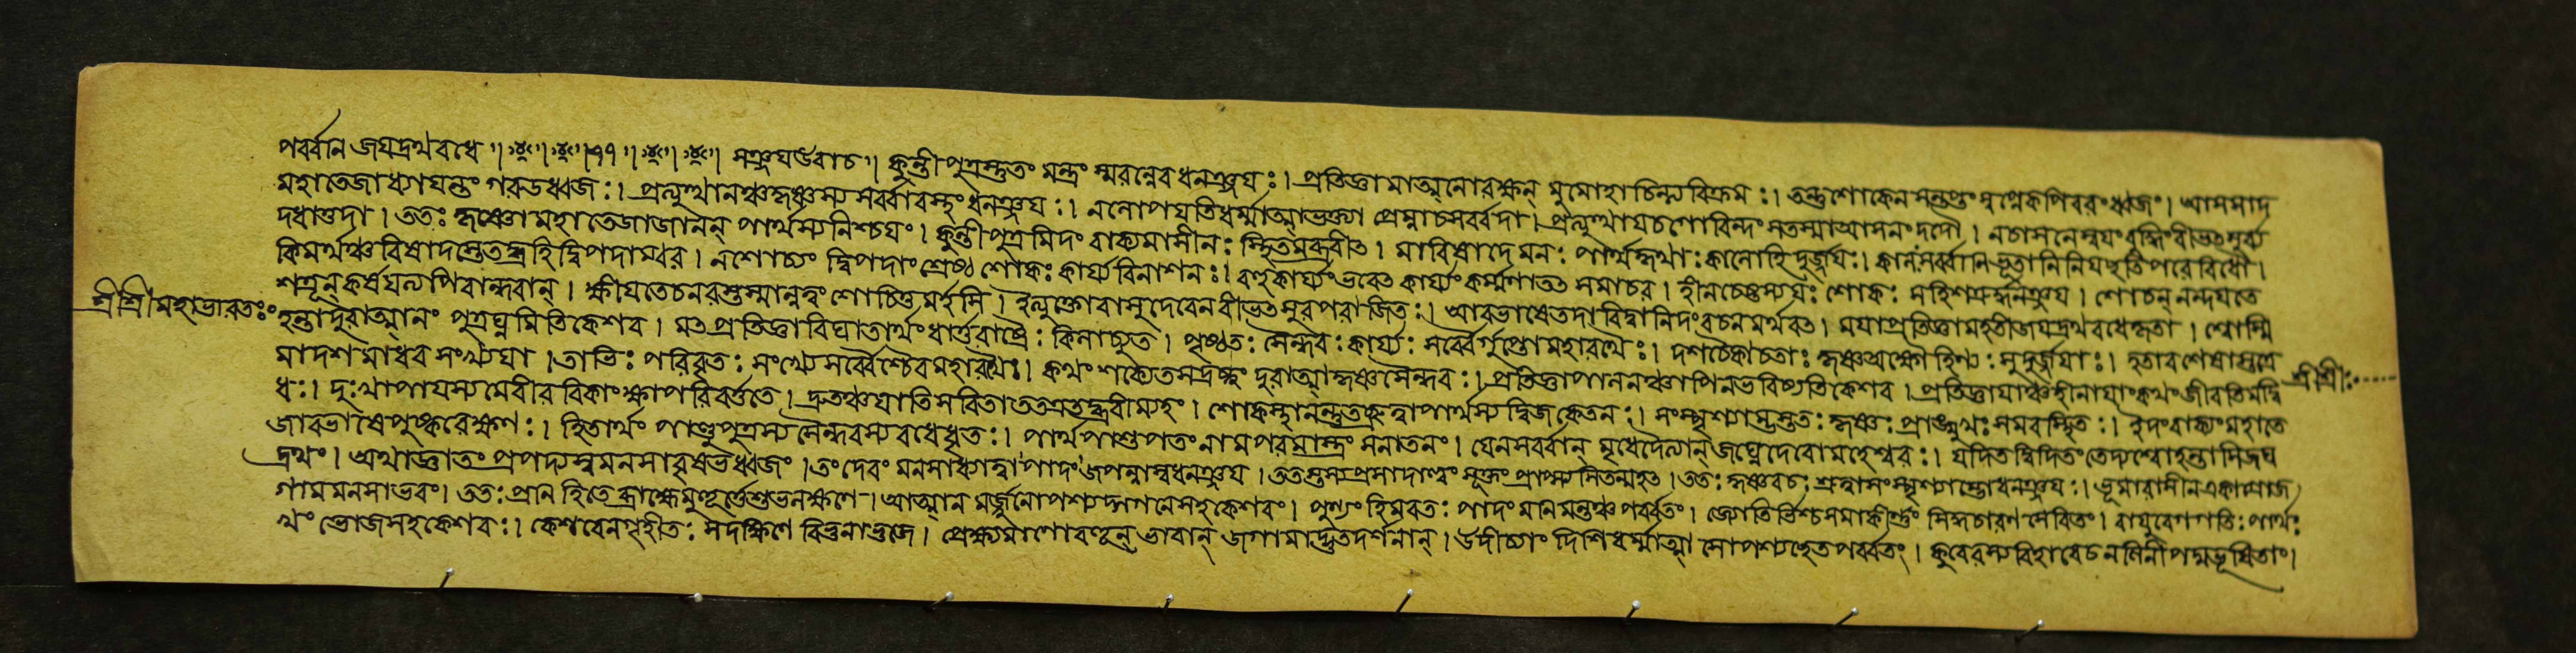 পর্ব্বনি জয়দ্রথবধে ॥ ৭৭ ॥ সঞ্জয়উবাচ ॥ কুন্তীপুত্রস্তুতং মন্ত্রং স্মরন্নেবধনঞ্জয়ঃ । প্রতিজ্ঞামাত্মনোরক্ষন্ মুমোহাচিন্ত্যবিক্রমঃ । তন্তুশোকেনসন্তপ্তং স্বপ্নেকপিবরংধ্বজং । আসসাদ
মহাতেজাধ্যায়ন্তং গরুডধ্বজঃ । প্রত্যুত্থানঞ্চকৃষ্ণস্য সর্ব্বাবস্থং ধনঞ্জয়ঃ । নলোপয়তিধর্ম্মাত্মাভক্ত্যা প্রেম্নাচসর্ব্বদা । প্রত্যুত্থায়চগোবিন্দং সতস্মাআসনংদদৌ । নচাসনেস্বয়ংবুদ্ধিংবীভৎসুর্ব্য
দধাত্তদা । ততঃ কৃষ্ণোমহাতেজাজানন্ পার্থস্যনিশ্চয়ং । কুন্তীপুত্রমিদং বাক্যমাসীনঃ স্থিতমব্রবীৎ । মাবিষাদেমনঃ পার্থকৃথাঃ কালোহিদুর্জ্জয়ঃ । কালঃসর্ব্বানিভূতানিনিয়চ্ছতিপরেবিধৌ ।
কিমর্থঞ্চবিষাদস্তেতদ্ব্রূহিদ্বিপদাম্বর । নশোচ্যং দ্বিপদাংশ্রেষ্ঠ শোকঃ কার্য্যবিনাশনঃ । যত্তুকার্য্যংভবেৎ কার্য্যং কর্ম্মণাতৎ সমাচর । হীনচেষ্টস্যয়ঃ শোকঃ সহিশত্রুর্দ্ধনঞ্জয় । শোচন্ নন্দয়তে
শত্রূন্ কর্ষয়ত্যপিবান্ধবান্ । ক্ষীয়তেচনরস্তস্মান্নত্বং শোচিতুমর্হসি । ইত্যুক্তোবাসুদেবেন বীভৎসুরপরাজিতঃ । আবভাষেতদাবিদ্বানিদংবচনমর্থবৎ । ময়াপ্রতিজ্ঞামহতীজয়দ্রথবধেকৃতা । শ্বোস্মি
শ্রীশ্রীমহাভারতঃ হন্তাদুরাত্মানং পুত্রঘ্নমিতিকেশব । মৎপ্রতিজ্ঞাবিঘাতার্থংধার্ত্তরাষ্ট্রৈঃ কিলাচ্যুত । পৃষ্ঠতঃ সৈন্ধবঃ কার্য্যঃ সর্ব্বৈর্গুপ্তোমহারথৈঃ । দশচৈকাচতাঃ কৃষ্ণঅক্ষৌহিণ্যঃ সুদুর্জ্জয়াঃ । হতাবশেষাস্তত্রে শ্রীশ্রীঃ
মাদশমাধব সংখ্যয়া । তাভিঃ পরিবৃতঃ সংখ্যে সর্ব্বৈশ্চৈবমহারথৈঃ । কথং শক্যেতমদ্রষ্টুং দুরাত্মাকৃষ্ণসৈন্ধবঃ । প্রতিজ্ঞাপালনঞ্চাপিনভবিষ্যতিকেশব । প্রতিজ্ঞায়াঞ্চহীনায়াংকথংজীবতিমদ্বি
ধঃ । দুঃখাপায়স্যমেবীর বিকাংক্ষাপরিবর্ত্ততে । দ্রুতঞ্চয়াতিসবিতাততএতদ্ব্রবীম্যহং । শোকস্থানন্তুতচ্ছ্রুত্বাপার্থস্যদ্বিজকেতনঃ । সংস্পৃশ্যাম্ভস্ততঃ কৃষ্ণঃ প্রাঙ্মুখঃ সমবস্থিতঃ । ইদংবাক্যংমহাতে
জাবভাষেপুষ্করেক্ষণঃ । হিতার্থং পাণ্ডুপুত্রস্যসৈন্ধবস্যবধেধৃতঃ । পার্থপাশুপতংনামপরমাস্ত্রং সনাতনং । যেনসর্ব্বান্ মৃধেদৈত্যান্জঘ্নেদেবোমহেশ্বরঃ । যদিতদ্বিদিতংতেদ্যশ্বোহন্তাসিজয়
দ্রথং । অথাজ্ঞাতং প্রপদ্যস্বমনসাবৃষভধ্বজং । তংদেবং মনসাধ্যাত্বাপাদংজপন্নাস্বধনঞ্জয় । ততস্তস্যপ্রসাদাত্ত্বং ভক্তঃ প্রাপ্স্যসিতন্মহৎ । ততঃ কৃষ্ণবচঃ শ্রুত্বাসংস্পৃশ্যাম্ভোধনঞ্জয়ঃ । ভূমাবাসীনএকাগ্রোজ
গামমনসাভবং । ততঃ প্রানিহিতেব্রাহ্মেমুহূর্ত্তেশুভলক্ষণে । আত্মানমর্জ্জুনোপশ্যদ্গগনেসহকেশবং । পুণ্যং হিমবতঃ পাদং মনিমন্তঞ্চপর্ব্বতং । জ্যোতির্ভিশ্চসমাকীর্ণং সিদ্ধচারণসেবিতং । বায়ুবেগগতিঃ পার্থঃ
খং ভেজেসহকেশবঃ । কেশবেনগৃহীতঃ সদক্ষিণে বিভুনাভুজে । প্রেক্ষ্যমাণোবহূন্ ভাবান্ জগামাদ্ভুতদর্শনান্ । উদীচ্যাং দিশিধর্ম্মাত্মা সোপশ্যচ্ছ্বেতপর্ব্বতং । কুবেরস্যবিহারেচ নলিনীপদ্মভূষিতাং ।